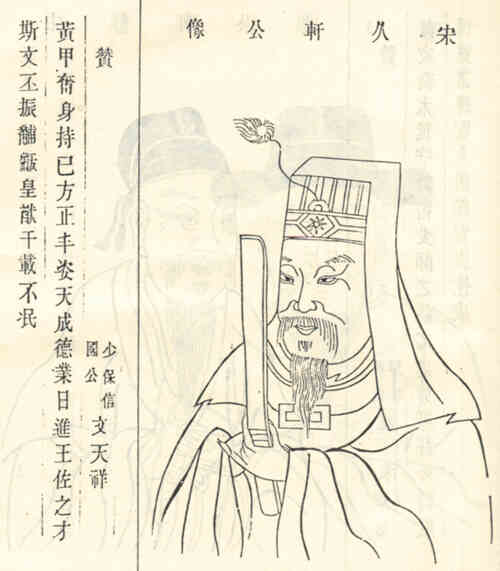 宋久軒公像
贊 少保信國公 文天祥
黃甲奮身持已方正丰姿天成德業日進王佐之才
斯文丕振黼黻皇猷千載不泯